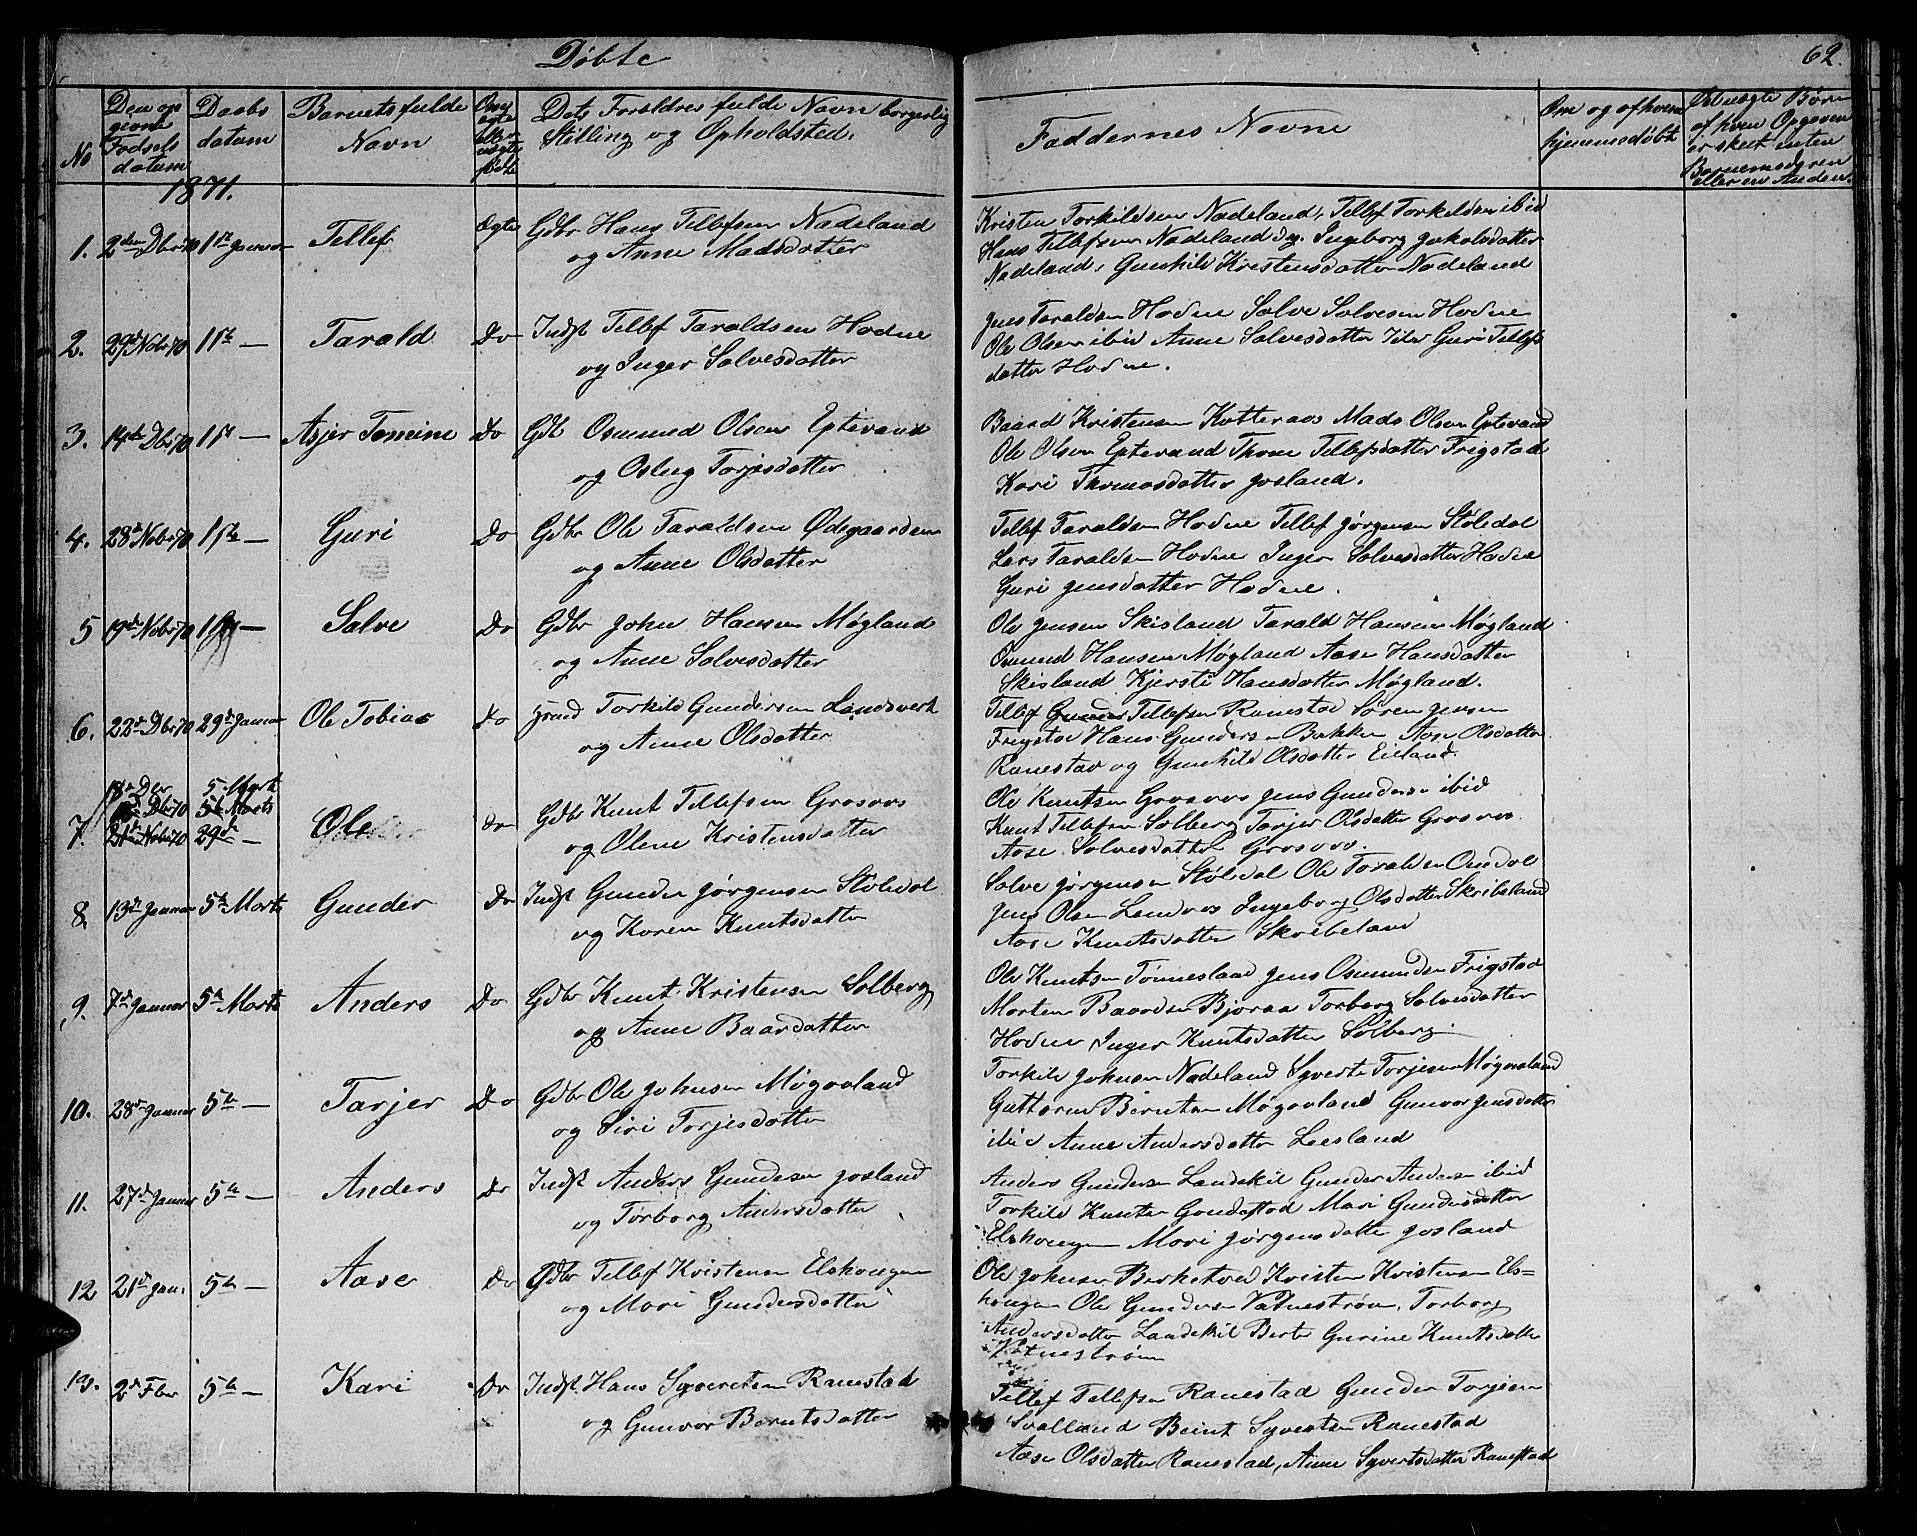 Döbte
62.
No
Den op
givne
Fødsels
datum
Daabs
datum
Barnets fulde
Navn
Dets Foraldres fulde Navn borgerlig
Stilling og Opholdsted.
Faddernes Navne
Om og af hvem
hjemmedøbt
Uæegte Børn
af hvem Opgaven
er skeet enten
Barnemoderen
eller en Anden.
1871.
1. 2den Dbr 70 1ste Januar Tellef Ægte Gdbr Hans Tellefsen Nadeland
og Anne Madsdatter
Kristen Torkildsen Nadeland, Tellef Torkildsen ibid
Hans Tellefsen Nadeland Ingeborg Jakobsdatter
Nadeland, Gunhild Kristensdatter Nadeland
2. 29d Nobr 70 1ste — Tarald Do Indst Tellef Taraldsen Hodne
og Inger Salvesdatter
Jens Taraldsen Hodne Salve Salvesen Hodne
Ole Olsen ibid Anne Salvesdatter Guri Tellefs
datter Hodne.
3. 14de Dbr 70 1ste — Asjer Tomine Do Gdb Osmund Olsen Eptevand
og Osleg Torjesdatter
Baard Kristensen Kotteraas Mads Olsen Eptevand
Ole Olsen Eptevand Thone Tellefsdatter Frigstad
Kari Thomasdatter Josland.
4. 28d Nobr 70 1ste — Guri Do Gdbr Ole Taraldsen Ødegaarden
og Anne Olsdatter
Tellef Taraldsen Hodne Tellef Jørgensen Støledal
Lars Taraldsen Hodne Inger Salvesdatter Hodne
Guri Jensdatter Hodne.
5 19d Nobr 70 — Salve Do Gdbr John Hansen Møgland
og Anne Salvesdatter
Ole Jensen Skisland Tarald Hansen Møgland
Osmund Hansen Møgland Aase Hansdatter
Skisland Kjersti Hansdatter Møgland.
6. 22d Dbr 70 29d Januar Ole Tobias Do Torkild Gundersen Landsverk
og Anne Olsdatter
Tellef Tellefsen Ranestad Søren Jensen
Frigstad Hans Gundersen Bakken Aase Olsdatter
Ranestad og Gunhild Olsdatter Eieland
18d Dbr 5 Martz
Dbr 70 5te Marts
7. 21d Nobr 70 29d — Ole Do Gdbr Knut Tellefsen Grosaas
og Olene Kristensdatter
Ole Knutsen Grosaas Jens Gundersen ibid
Knut Tellefsen Solberg Torjer Olsdatter Grosaas
Aase Salvesdatter Grosaas.
8 13d Januar 5te Marts Gunder Do Indst Gunder Jørgensen Støledal
og Karen Knutsdatter
Salve Jørgensen Støledal Ole Taraldsen Omdal
Jens Olsen Lendaas Ingeborg Olsdatter Skribeland
Aase Knutsdatter Skribeland
9. 7d Januar 5te Marts Anders Do Gdbr Knut Kristensen Solberg
og Anne Baardatter
Ole Knutsen Tønnesland Jens Osmundsen Frigstad
Morten Baardsen Bjoraa Torborg Salvesdatter
Hodne, Inger Knutsdatter Solberg
10. 28d Januar 5te — Tarjer Do Gdbr Ole Johnsen Møgaaland
og Siri Torjesdatter
Torkild Johnsen Nadeland Syvert Torjesen Møgaaland
Guttorm Berntsen Møgaaland Gunvor Jensdatter
ibid Anne Andersdatter Leesland
11. 27d Januar 5te — Anders Do Indst Anders Gundersen Josland
og Torborg Andersdatter
Anders Gundersen Landekil Gunder Andersen ibid
Torkild Knutsen Mari Gundersdatter
Elskougen Mari Jørgensdatter Josland
12 21d Jan. 5te — Aase Do Gdbr Tellef Kristensen Elskougen
og Mari Gundersdatter
Ole Johnsen Birketved Kristen Kristensen Els-
kougen Ole Gundersen Vatnestrøm, Torborg
Andersdatter Landekil Berte Gurine Knutsdatter
Vatnestrøm
13. 2d Fbr 5te — Kari Do Indst Hans Syvertsen Ranestad
og Gunvor Berntsdatter
Tellef Tellefsen Ranestad Gunder Torjesen
Svalland Beint Syvertsen Ranestad
Aase Olsdatter Ranestad, Anne Syvertsdatter Ranestad